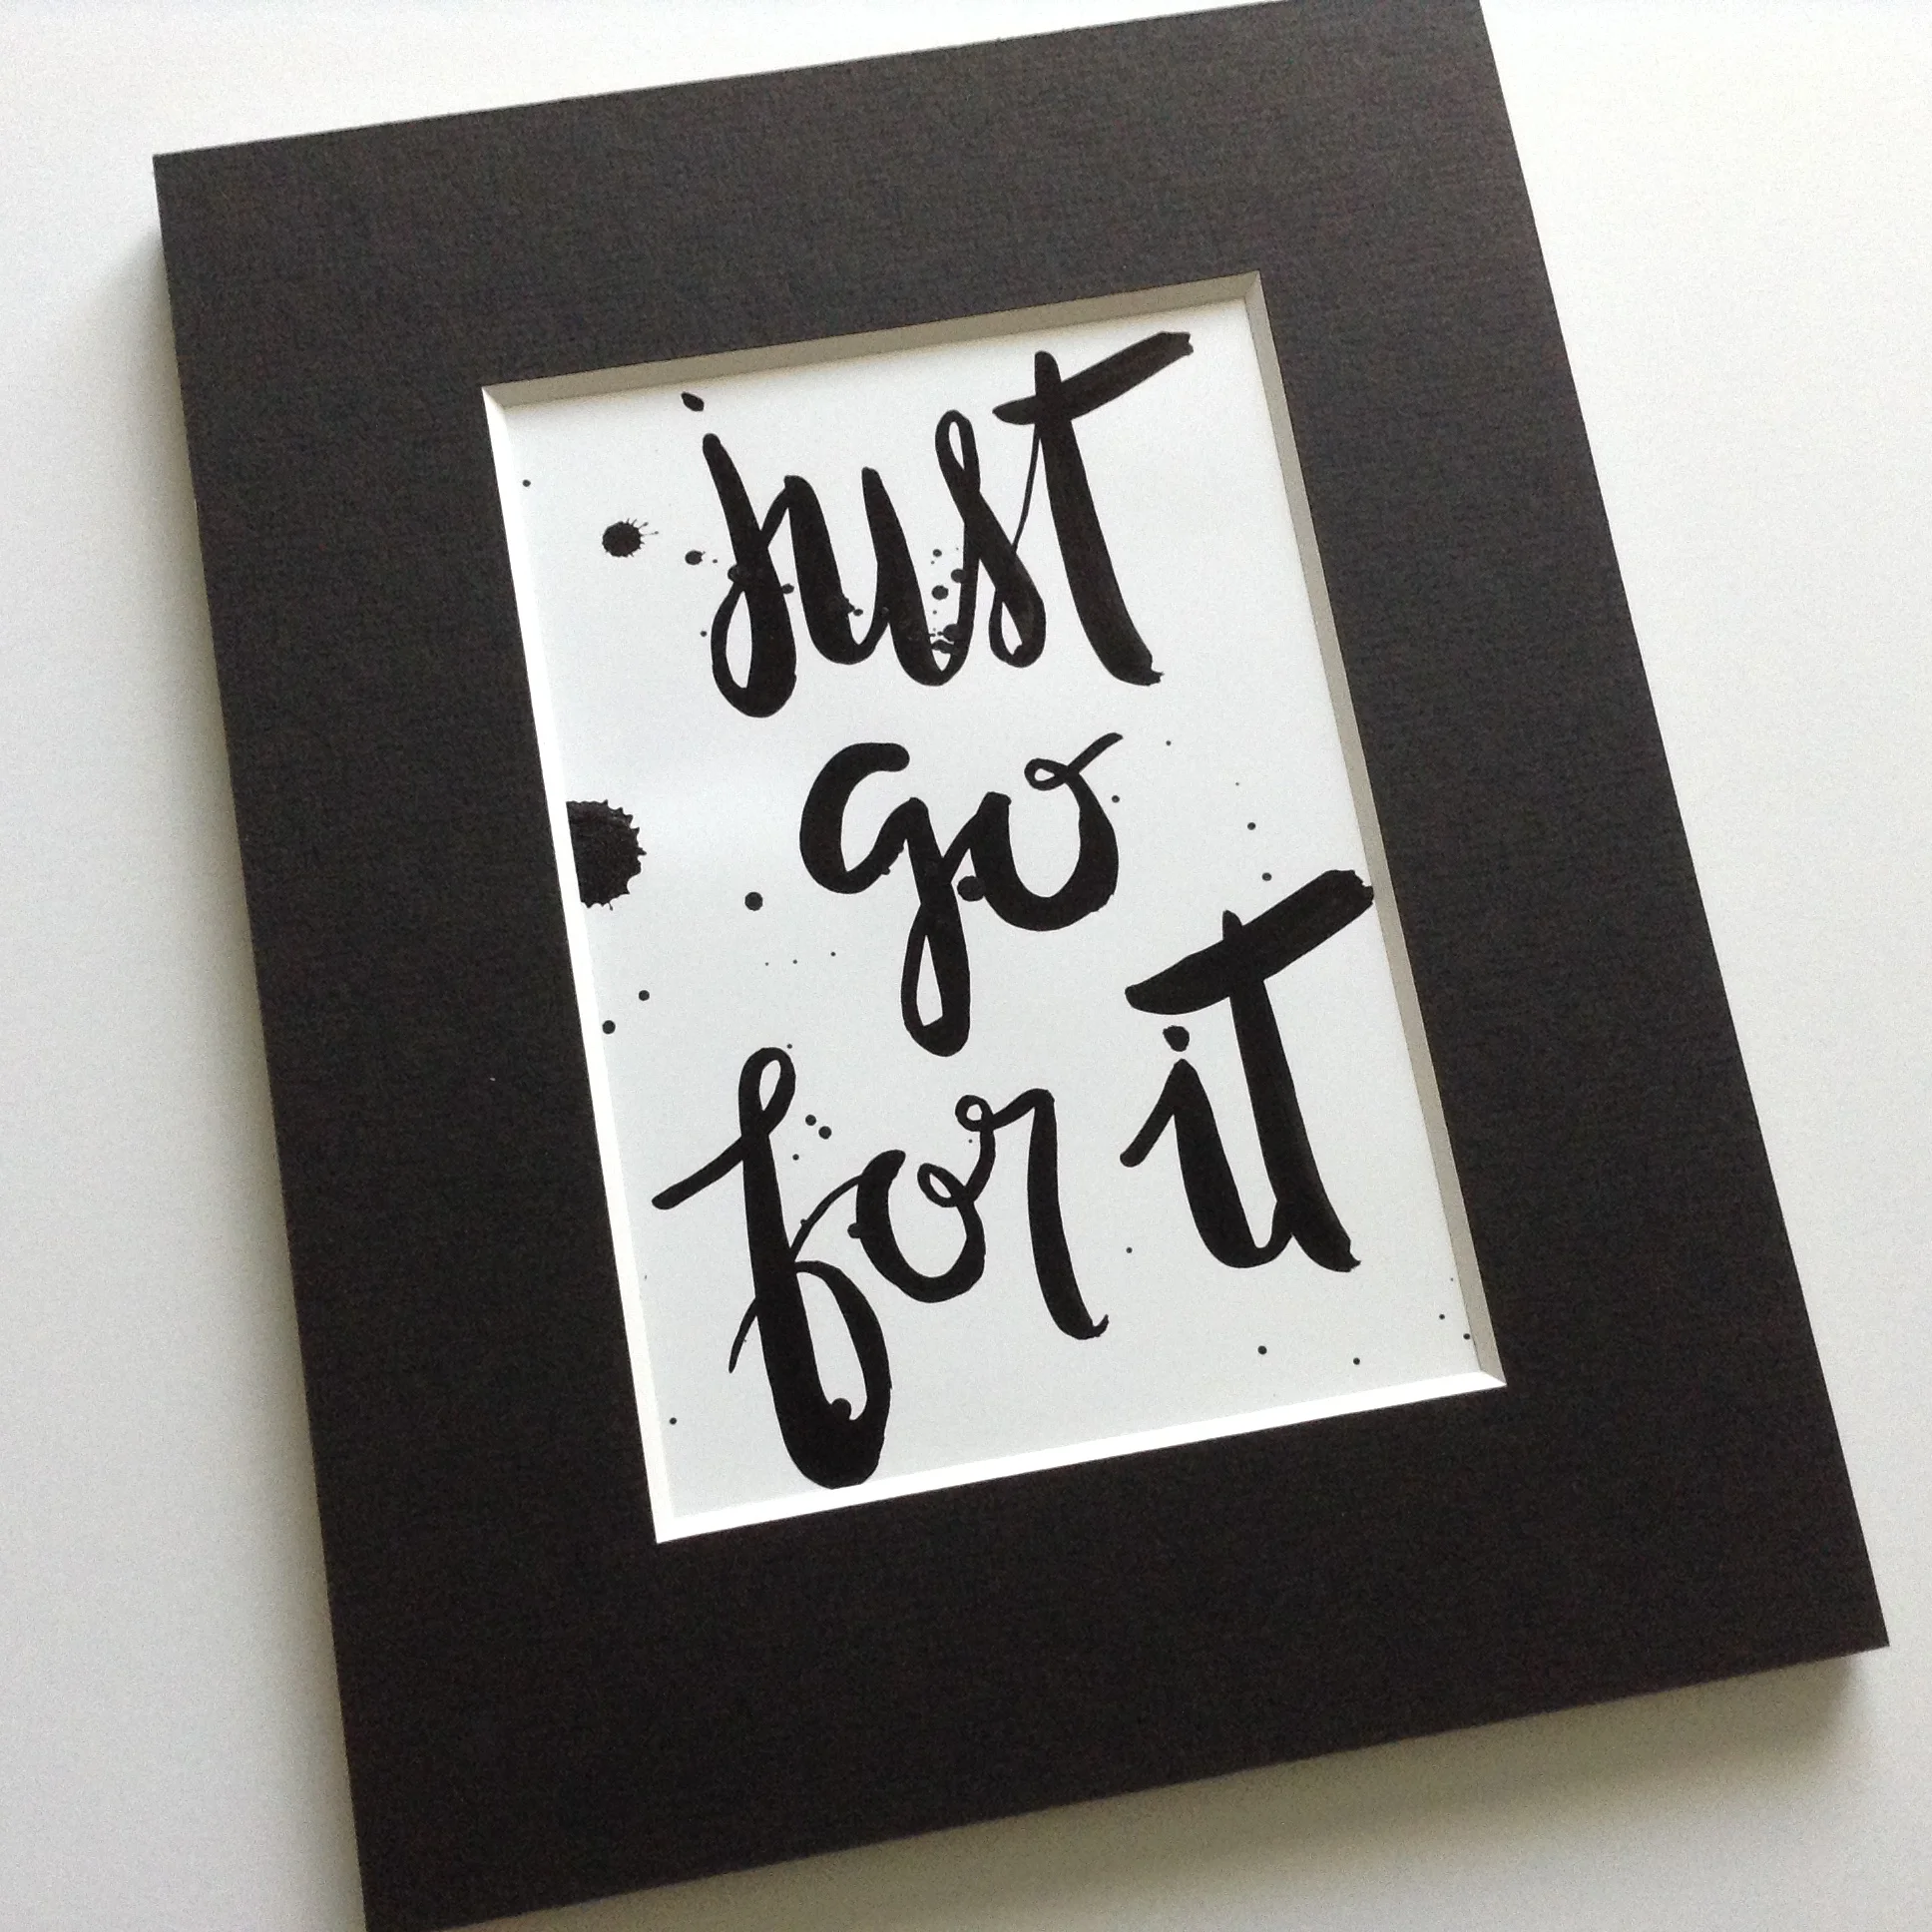 just
go
for it